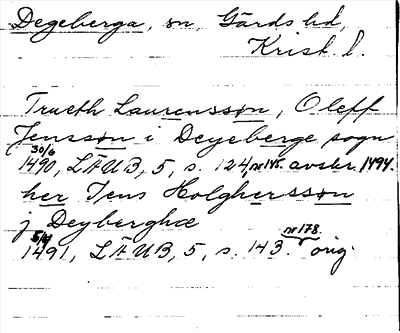 Degeberga, sn, Gärds hd,
Krist. l.
Trueth Laurensson, Oleff
Jensson i Deyeberge sogn
30/6
1490, LÄUB, 5, s. 124, nr 145. avskr. 1494.
her Jens Holghersson
j Deyberghæ
1491, LÄUB, 5, s. 143. nr 178. orig.